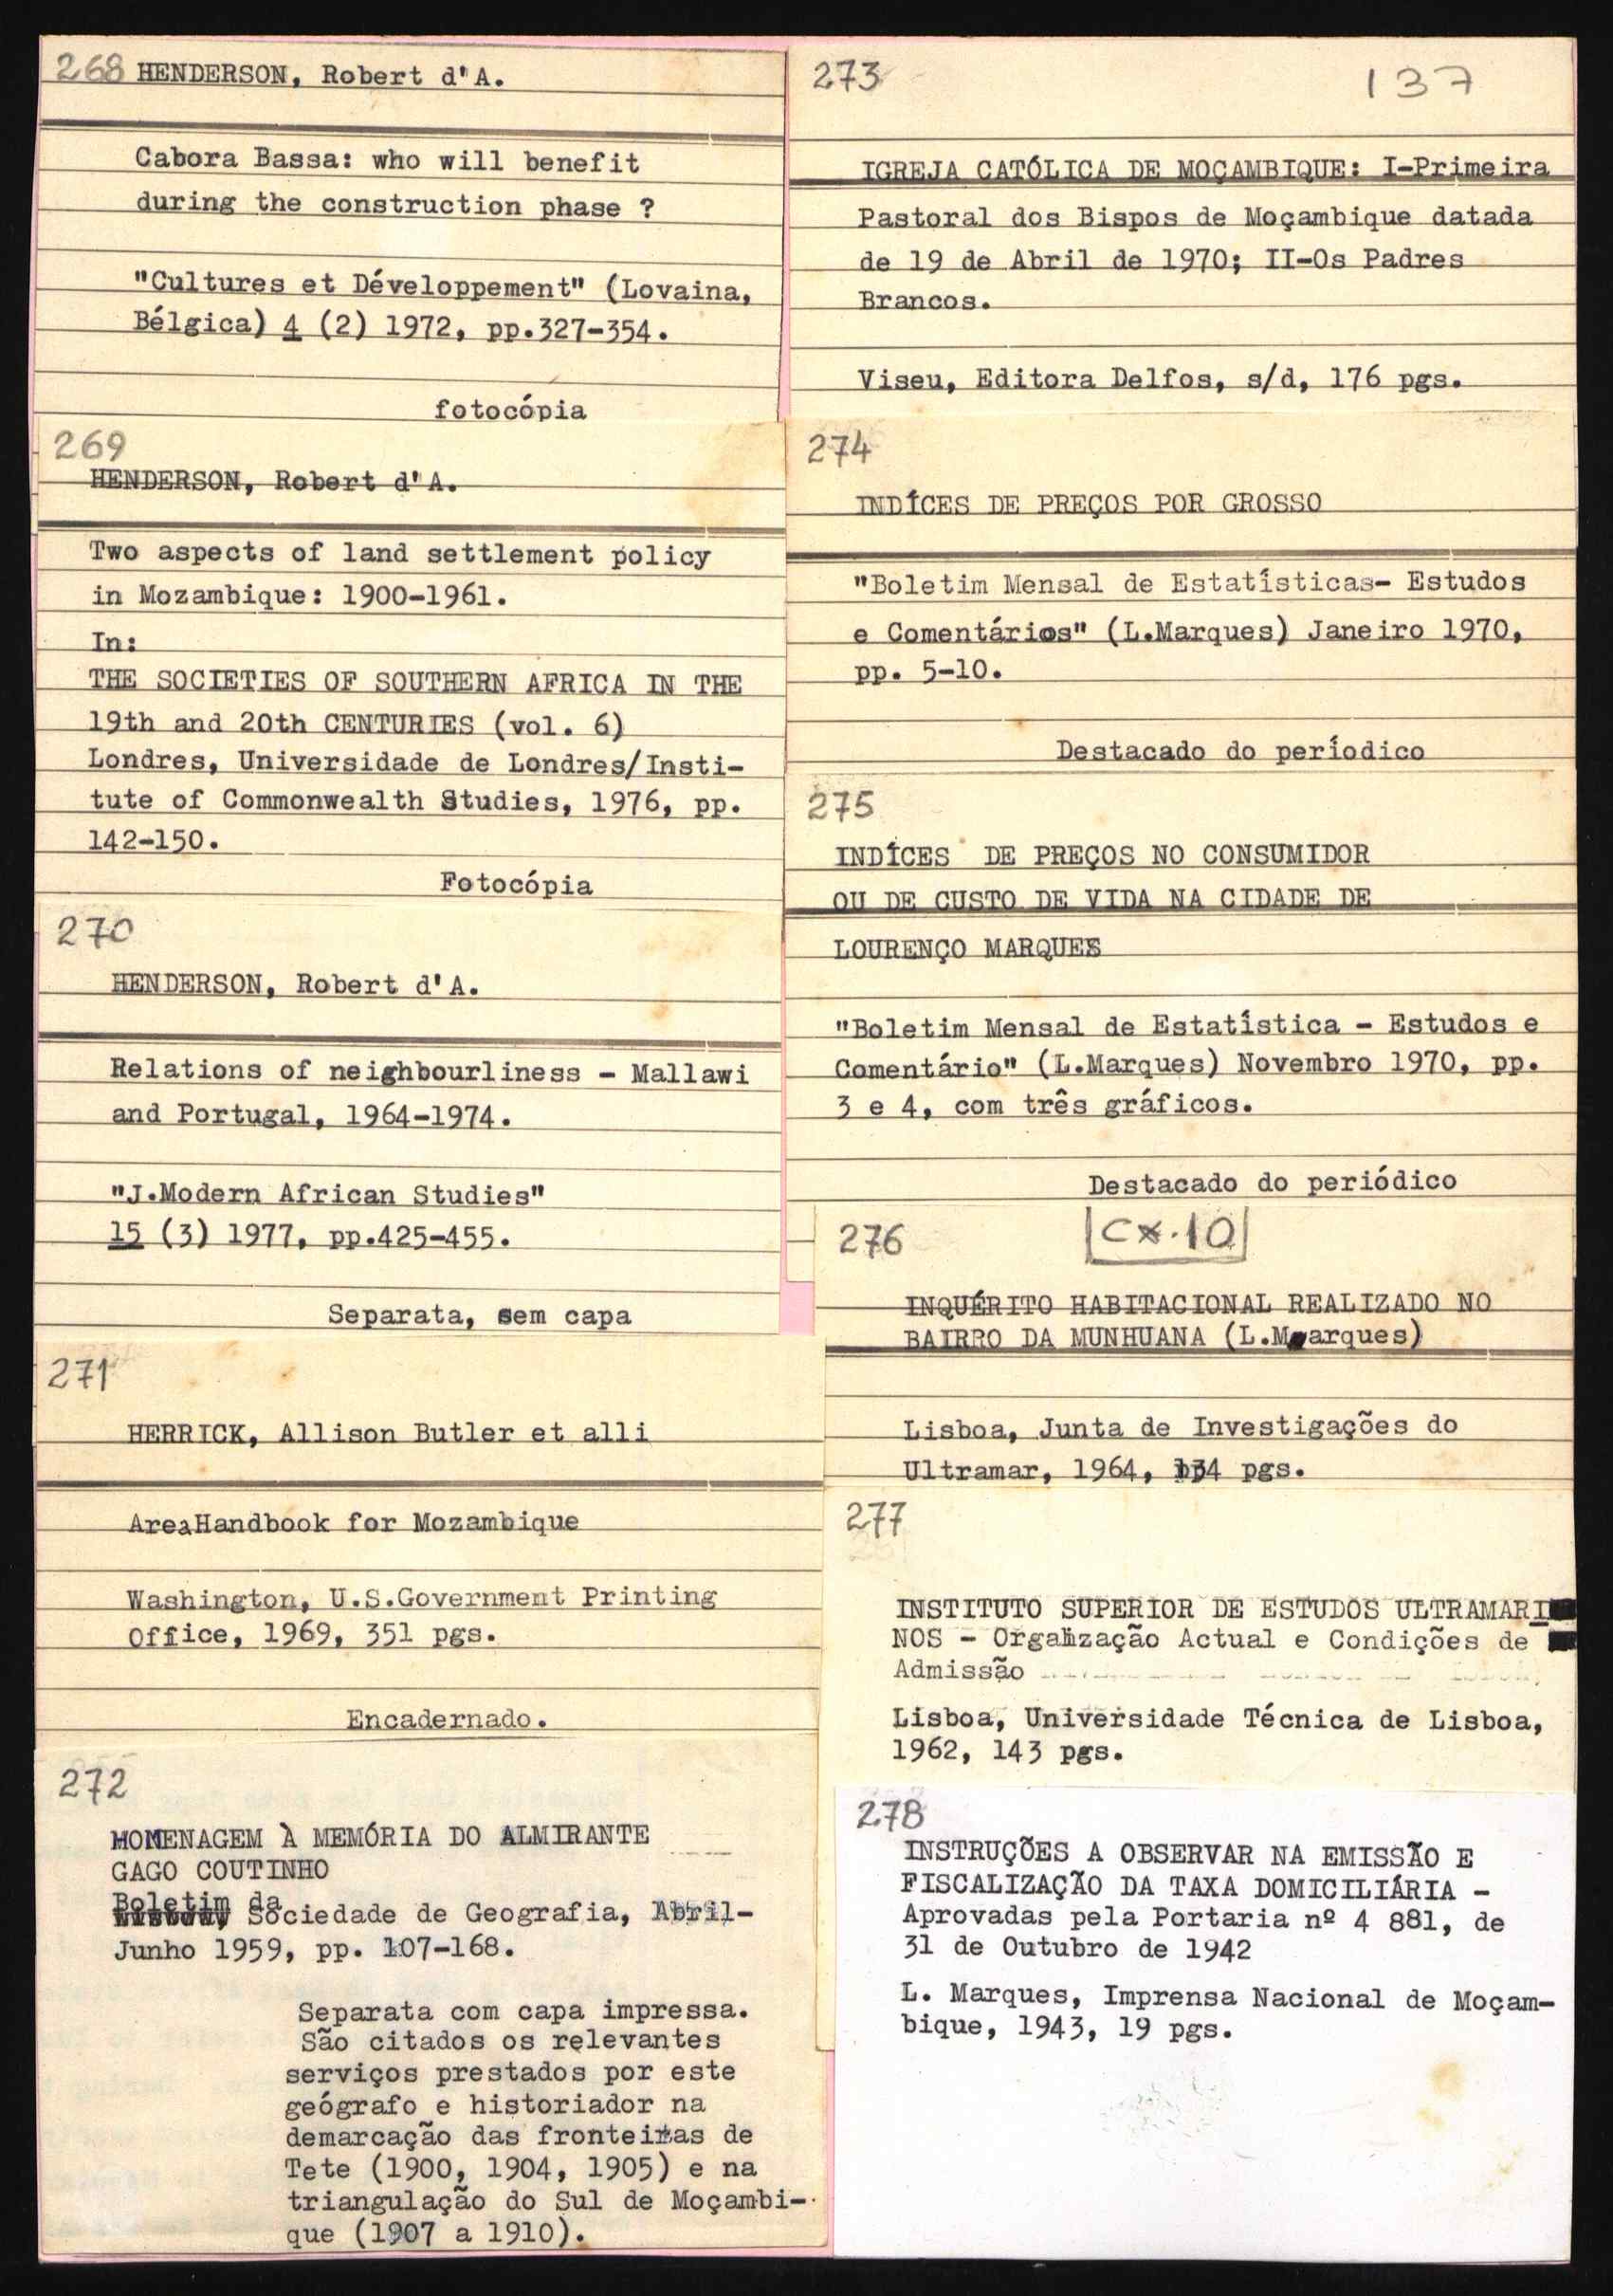 268 HENDERSON, Robert d'A.
Cabora Bassa: who will benefit
during the construction phase ?
"Cultures et Développement" (Lovaina,
Bélgica) 4 (2) 1972, pp.327-354.
fotocópia
269
HENDERSON, Robert d'A.
Two aspects of land settlement policy
in Mozambique: 1900-1961.
In:
THE SOCIETIES OF SOUTHERN AFRICA IN THE
19th and 20th CENTURIES (vol. 6)
Londres, Universidade de Londres/Insti-
tute of Commonwealth Studies, 1976, pp.
142-150.
Fotocópia
270
HENDERSON, Robert d'A.
Relations of neighbourliness - Mallawi
and Portugal, 1964-1974.
"J.Modern African Studies"
15 (3) 1977, pp.425-455.
Separata, sem capa
271
HERRICK, Allison Butler et alli
Area Handbook for Mozambique
Washington, U.S.Government Printing
Office, 1969, 351 pgs.
Encadernado.
272
HOMENAGEM À MEMÓRIA DO ALMIRANTE
GAGO COUTINHO
Boletim da
Sociedade de Geografia, Abril-
Junho 1959, pp. 107-168.
Separata com capa impressa.
São citados os relevantes
serviços prestados por este
geógrafo e historiador na
demarcação das fronteiras de
Tete (1900, 1904, 1905) e na
triangulação do Sul de Moçambi-
que (1907 a 1910).
273
137
IGREJA CATÓLICA DE MOÇAMBIQUE: I-Primeira
Pastoral dos Bispos de Moçambique datada
de 19 de Abril de 1970; II-Os Padres
Brancos.
Viseu, Editora Delfos, s/d, 176 pgs.
274
INDÍCES DE PREÇOS POR GROSSO
"Boletim Mensal de Estatísticas- Estudos
e Comentários" (L.Marques) Janeiro 1970,
pp. 5-10.
Destacado do períodico
275
INDÍCES DE PREÇOS NO CONSUMIDOR
OU DE CUSTO DE VIDA NA CIDADE DE
LOURENÇO MARQUES
"Boletim Mensal de Estatística - Estudos e
Comentário" (L.Marques) Novembro 1970, pp.
3 e 4, com três gráficos.
Destacado do periódico
276
CX.10
INQUÉRITO HABITACIONAL REALIZADO NO
BAIRRO DA MUNHUANA (L.Marques)
Lisboa, Junta de Investigações do
Ultramar, 1964, 134 pgs.
277
INSTITUTO SUPERIOR DE ESTUDOS ULTRAMARI
NOS - Organização Actual e Condições de
Admissão
Lisboa, Universidade Técnica de Lisboa,
1962, 143 pgs.
278
INSTRUÇÕES A OBSERVAR NA EMISSÃO E
FISCALIZAÇÃO DA TAXA DOMICILIÁRIA -
Aprovadas pela Portaria nº 4 881, de
31 de Outubro de 1942
L. Marques, Imprensa Nacional de Moçam-
bique, 1943, 19 pgs.